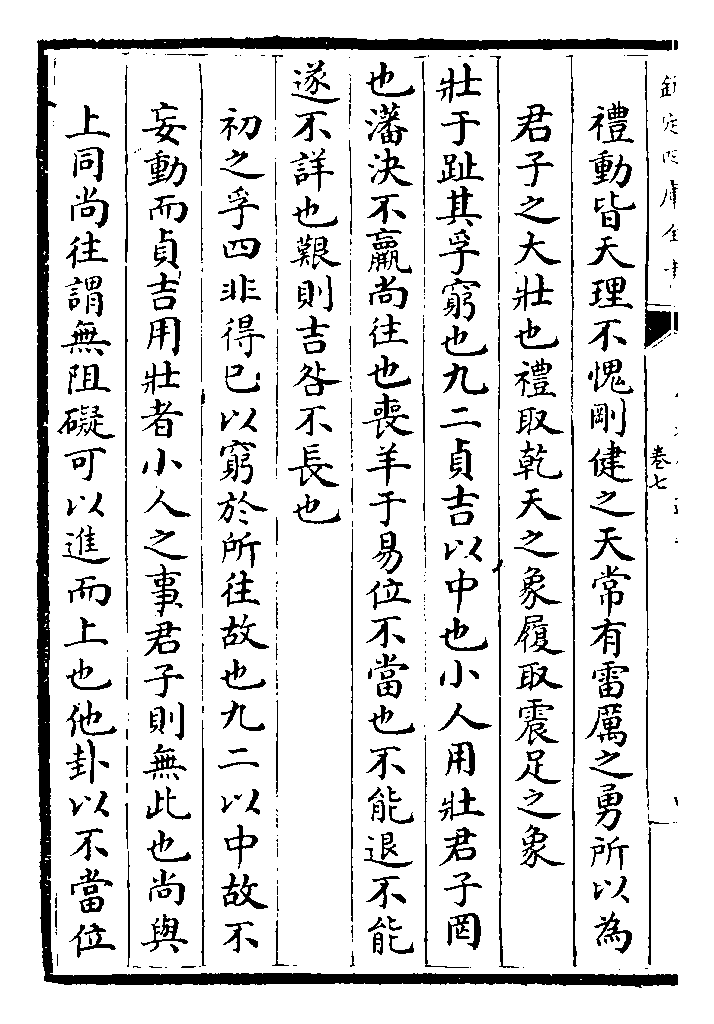 禮動皆天理不愧剛健之天常有雷厲之勇所以為
君子之大壯也禮取乾天之象履取震足之象
壯于趾其孚窮也九二貞吉以中也小人用壯君子罔
也藩決不羸尚往也喪羊于易位不當也不能退不能
遂不詳也艱則吉咎不長也
初之孚四非得已以窮於所往故也九二以中故不
妄動而貞吉用壯者小人之事君子則無此也尚與
上同尚往謂無阻礙可以進而上也他卦以不當位
欽定四庫全書
卷七